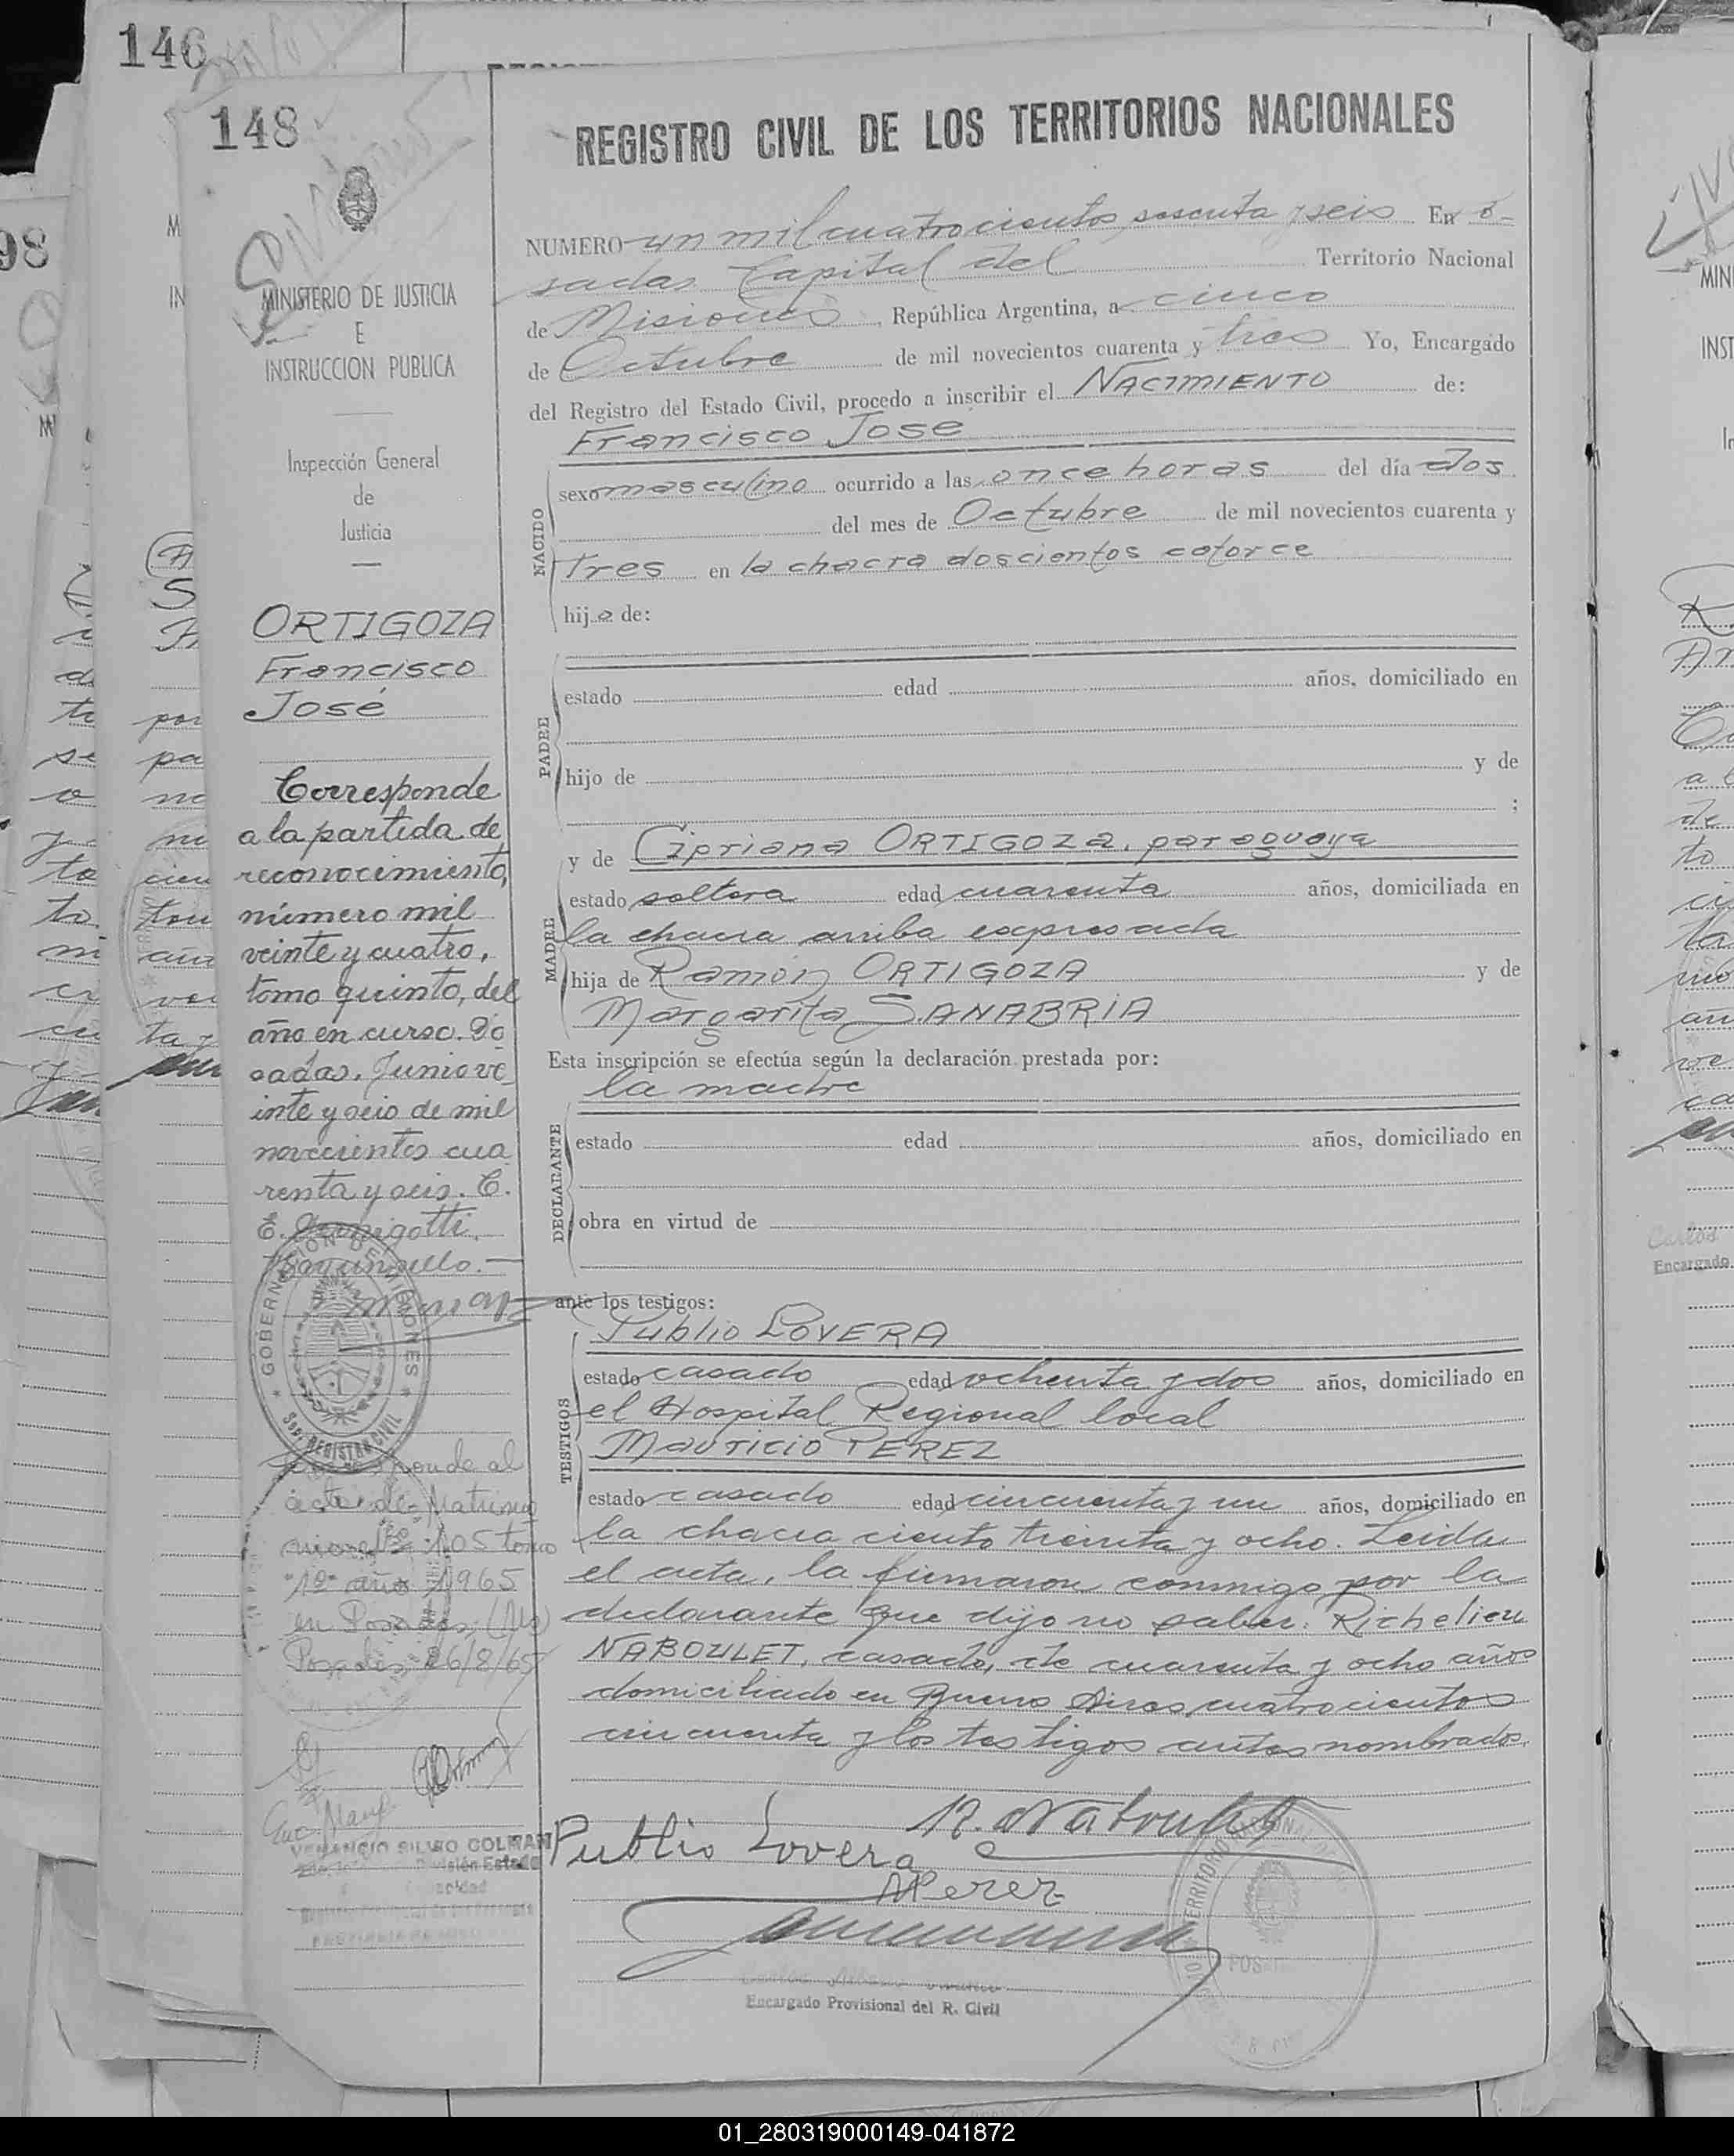 146
148
REGISTRO CIVIL DE LOS TERRITORIOS NACIONALES
NUMERO un mil cuatrocientos sesenta y seis En
sadas Capital del Territorio Nacional
de Misiones, República Argentina, a cinco
de Octubre de mil novecientos cuarenta y tres Yo, Encargado
del Registro del Estado Civil, procedo a inscribir el NACIMIENTO de:
Francisco Jose
NACIDO
sexo masculino ocurrido a las once horas del día dos
del mes de Octubre de mil novecientos cuarenta y
tres en la chacra doscientos catorce
hijo de:
PADRE
estado edad años, domiciliado en
hijo de y de
;
MADRE
y de Cipriana ORTIGOZA, paraguaya
estado soltera edad cuarenta años, domiciliada en
la chacra arriba expresada
hija de Ramón ORTIGOZA y de
Margarita SANABRIA
Esta inscripción se efectúa según la declaración prestada por:
la madre
DECLARANTE
estado edad años, domiciliado en
obra en virtud de
ante los testigos:
TESTIGOS
Publio LOVERA
estado casado edad ochenta y dos años, domiciliado en
el Hospital Regional local
Mauricio PEREZ
estado casado edad cincuenta y un años, domiciliado en
la chacra ciento treinta y ocho. Leida
el acta, la firmaron conmigo por la
declarante que dijo no saber: Richelieu
NABOULET, casado, de cuarenta y ocho años
domiciliado en Buenos Aires cuatrocientos
cincuenta y los testigos antes nombrados.
Publio Lovera
R. Naboulet
MPerez
Encargado Provisional del R. Civil
MINISTERIO DE JUSTICIA
E
INSTRUCCION PUBLICA
Inspección General
de
Justicia
ORTIGOZA
Francisco
José
Corresponde
a la partida de
reconocimiento,
número mil
veinte y cuatro,
tomo quinto, del
año en curso. Po
sadas, Junio ve
inte y seis de mil
novecientos cua
renta y seis. E.
E.
GOBERNACION DE MISIONES
Sec. REGISTRO CIVIL
Corresponde al
acta de Matrimo
nio Nº 105 tomo
"1º" año 1965
en Posadas, (Ms)
Posadas, 26/8/65
VENANCIO SILVIO COLMAN
División Estado
98
Encargado
01_280319000149-041872